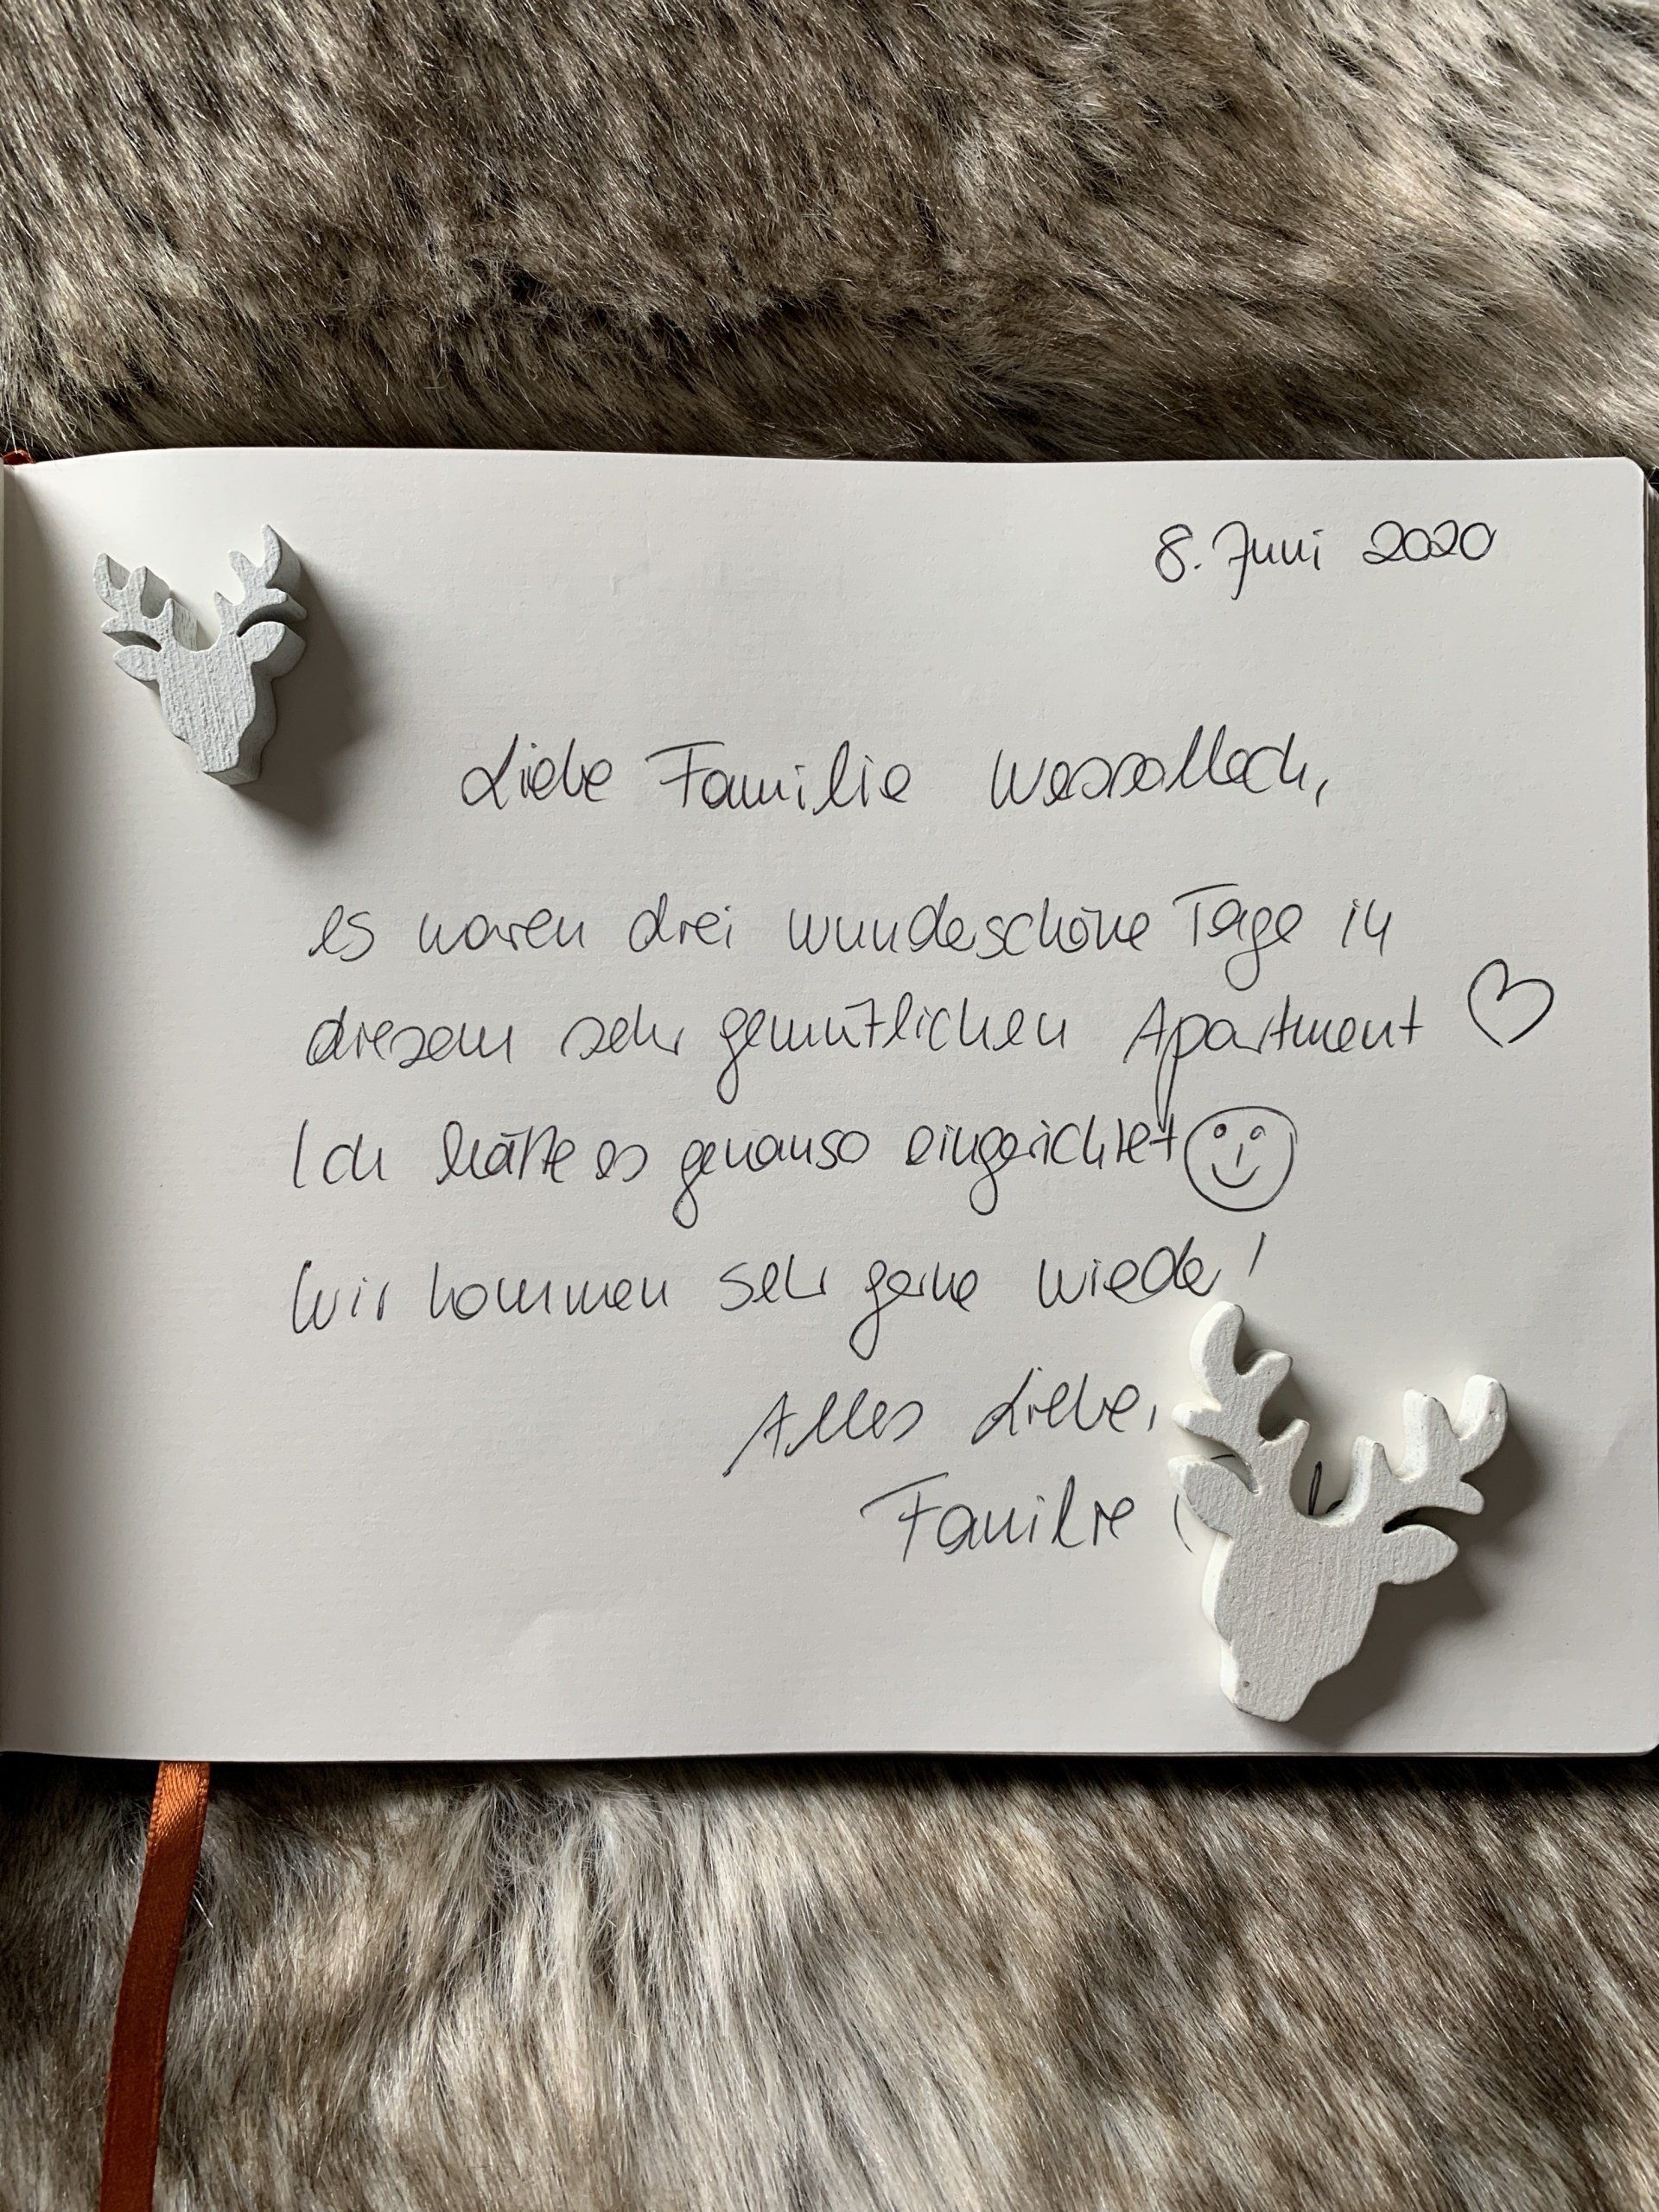 8. Juni 2020
Liebe Familie Wessollech,
es waren drei wundeschöne Tage in
diesem sehr gemütlichen Apartment ♡
Ich hätte es genauso eingerichtet ☺
Wir kommen sehr gerne wieder!
Alles Liebe,
Familie